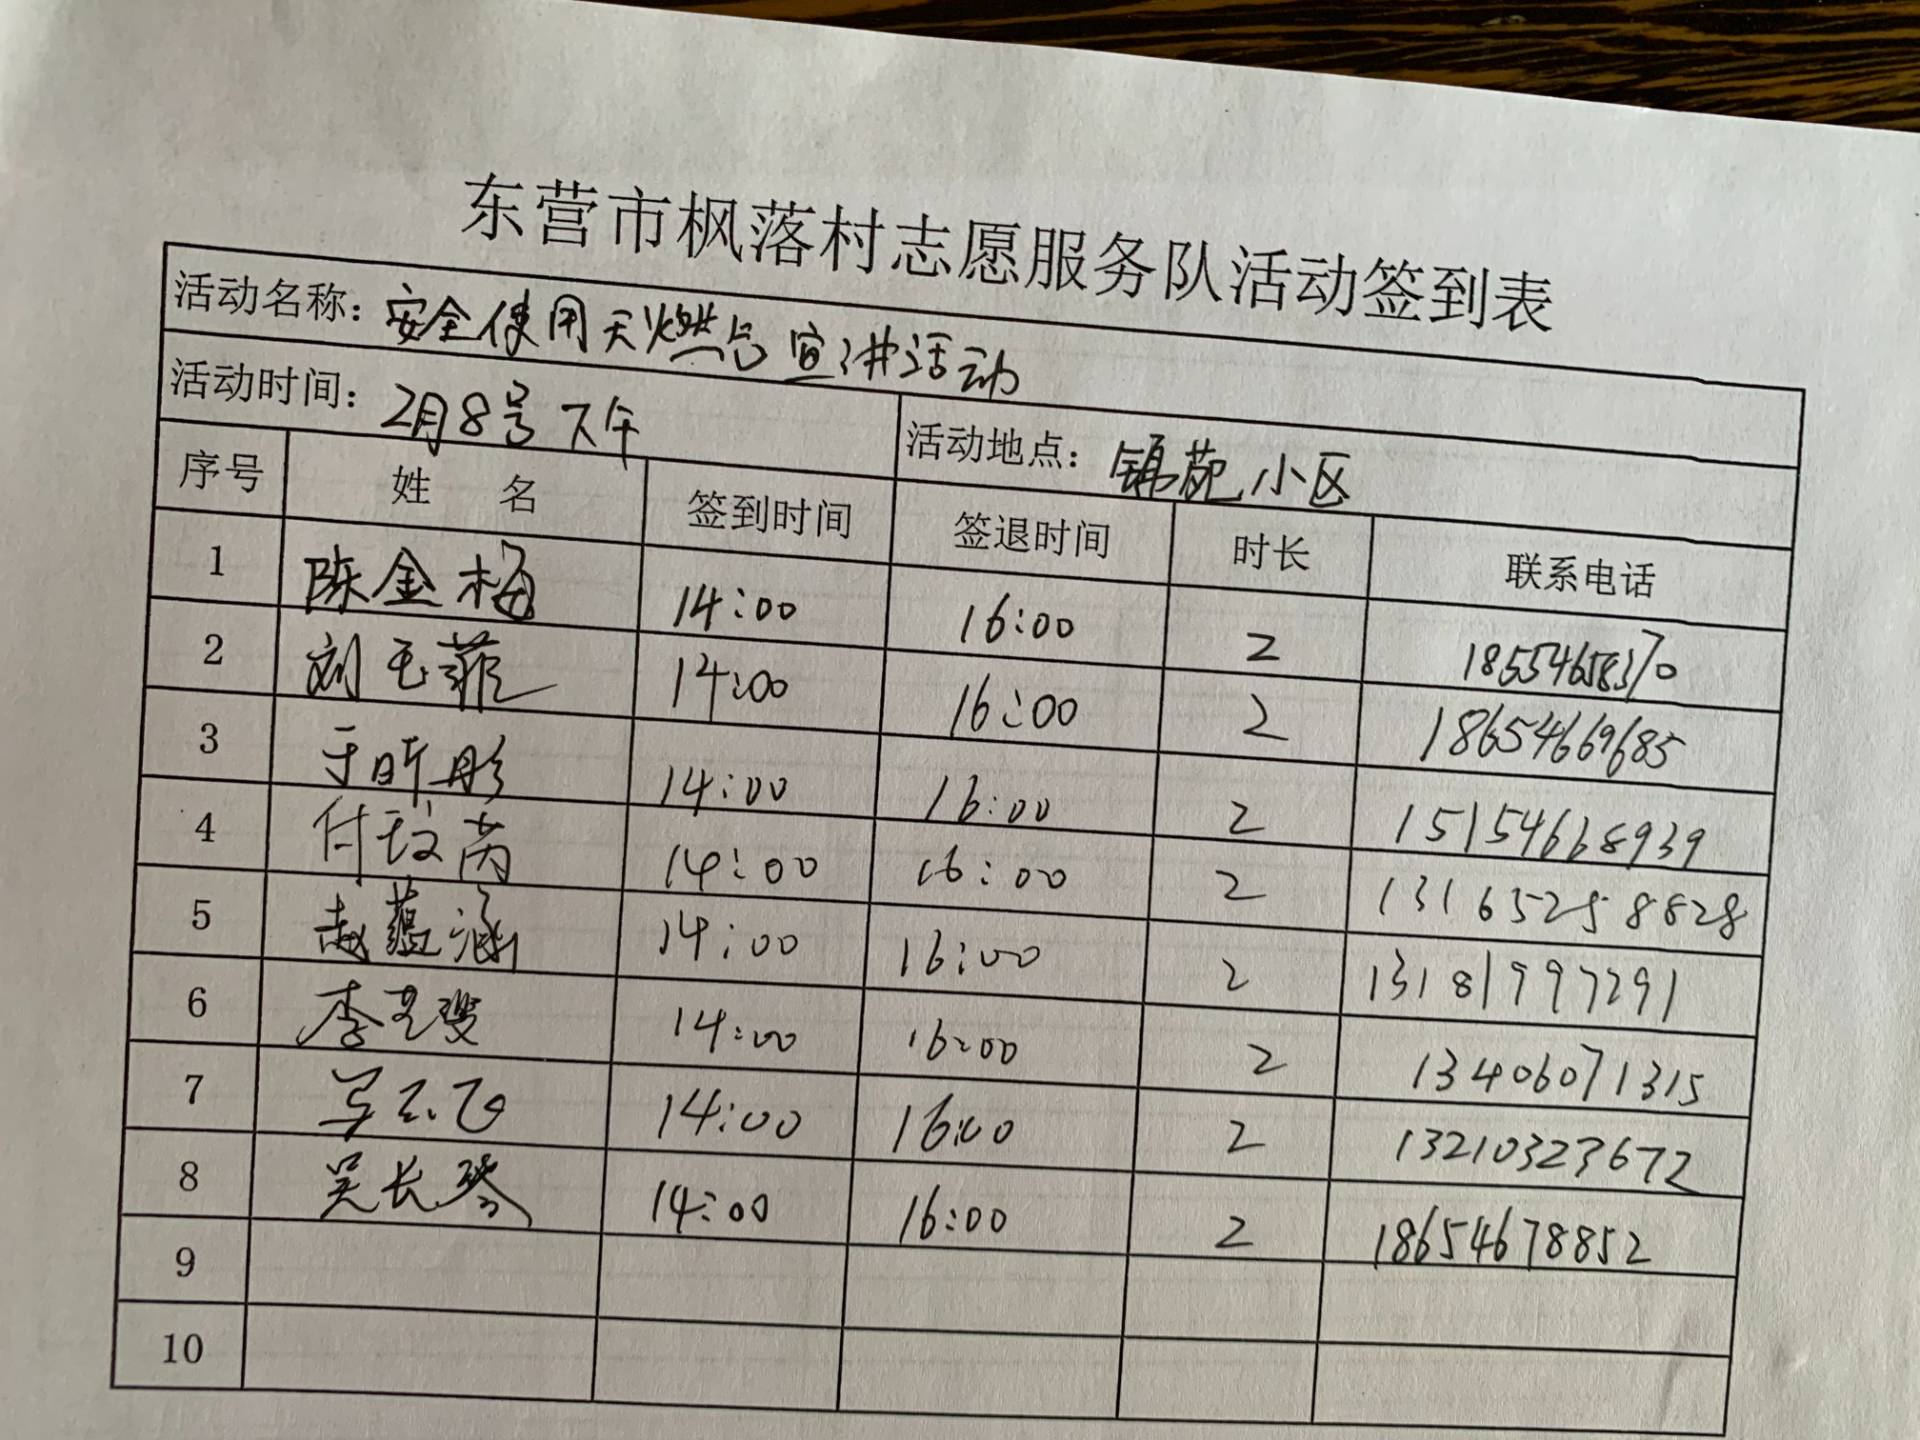 东营市枫落村志愿服务队活动签到表
活动名称：安全使用天燃气宣讲活动
活动时间：2月8号下午 活动地点：锦苑小区
序号 姓 名 签到时间 签退时间 时长 联系电话
1 陈金梅 14:00 16:00 2 18554658370
2 刘玉菲 14:00 16:00 2 18654669685
3 于昕彤 14:00 16:00 2 15154668939
4 付玟芮 14:00 16:00 2 13165258828
5 赵蕴涵 14:00 16:00 2 13181997291
6 李 14:00 16:00 2 13406071315
7 14:00 16:00 2 13210323672
8 吴长琴 14:00 16:00 2 18654678852
9
10